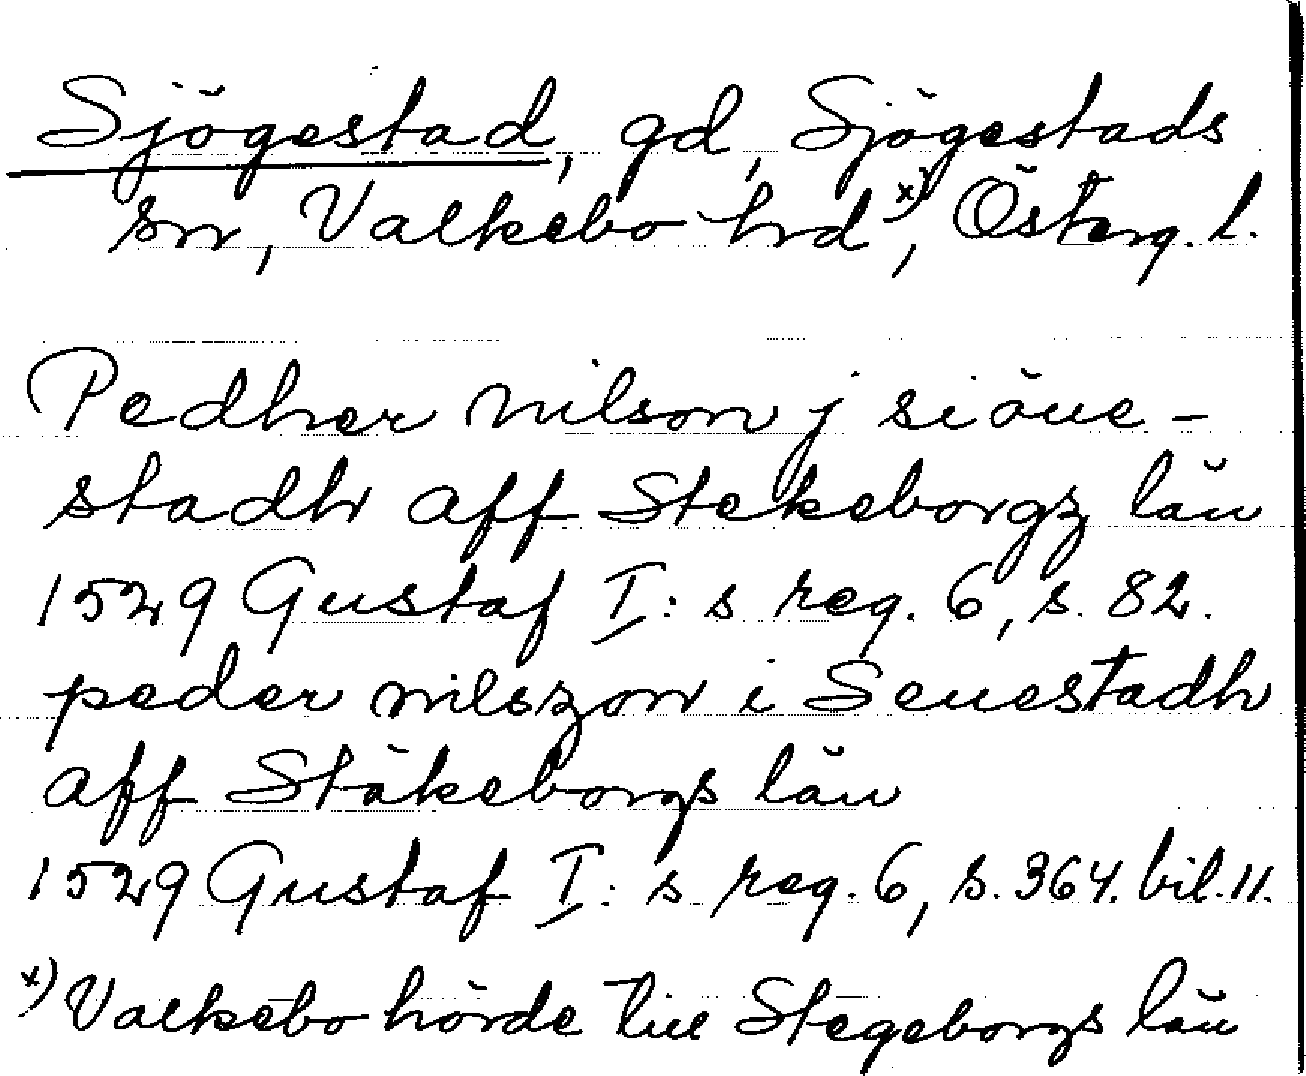 Sjögestad, gd, Sjögestads
sn, Valkebo hrd x), Österg. l.
Pedher nilson j siöue-
stadh aff Stekeborgz län
1529 Gustaf I: s reg. 6, s. 82.
peder nilszon i Seuestadh
aff Stäkeborgs län
1529 Gustaf I: s reg. 6, s. 364. bil. 11.
x) Valkebo hörde till Stegeborgs län